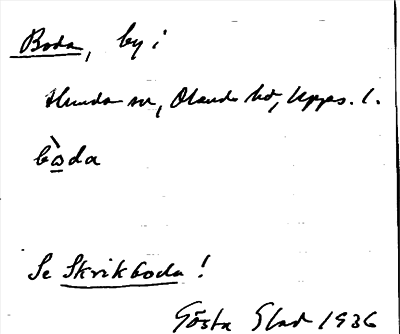 Boda, by i
Hunda sn, Olands hd, Upps. l.
bò̲da
Se Skrikboda!
Gösta Blad 1936